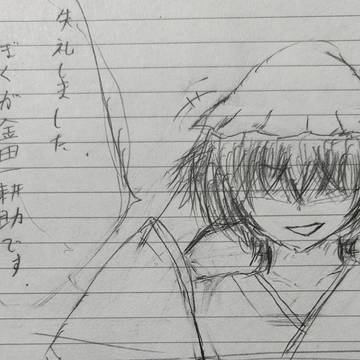 失礼しました.
ぼくが金田一耕助です.